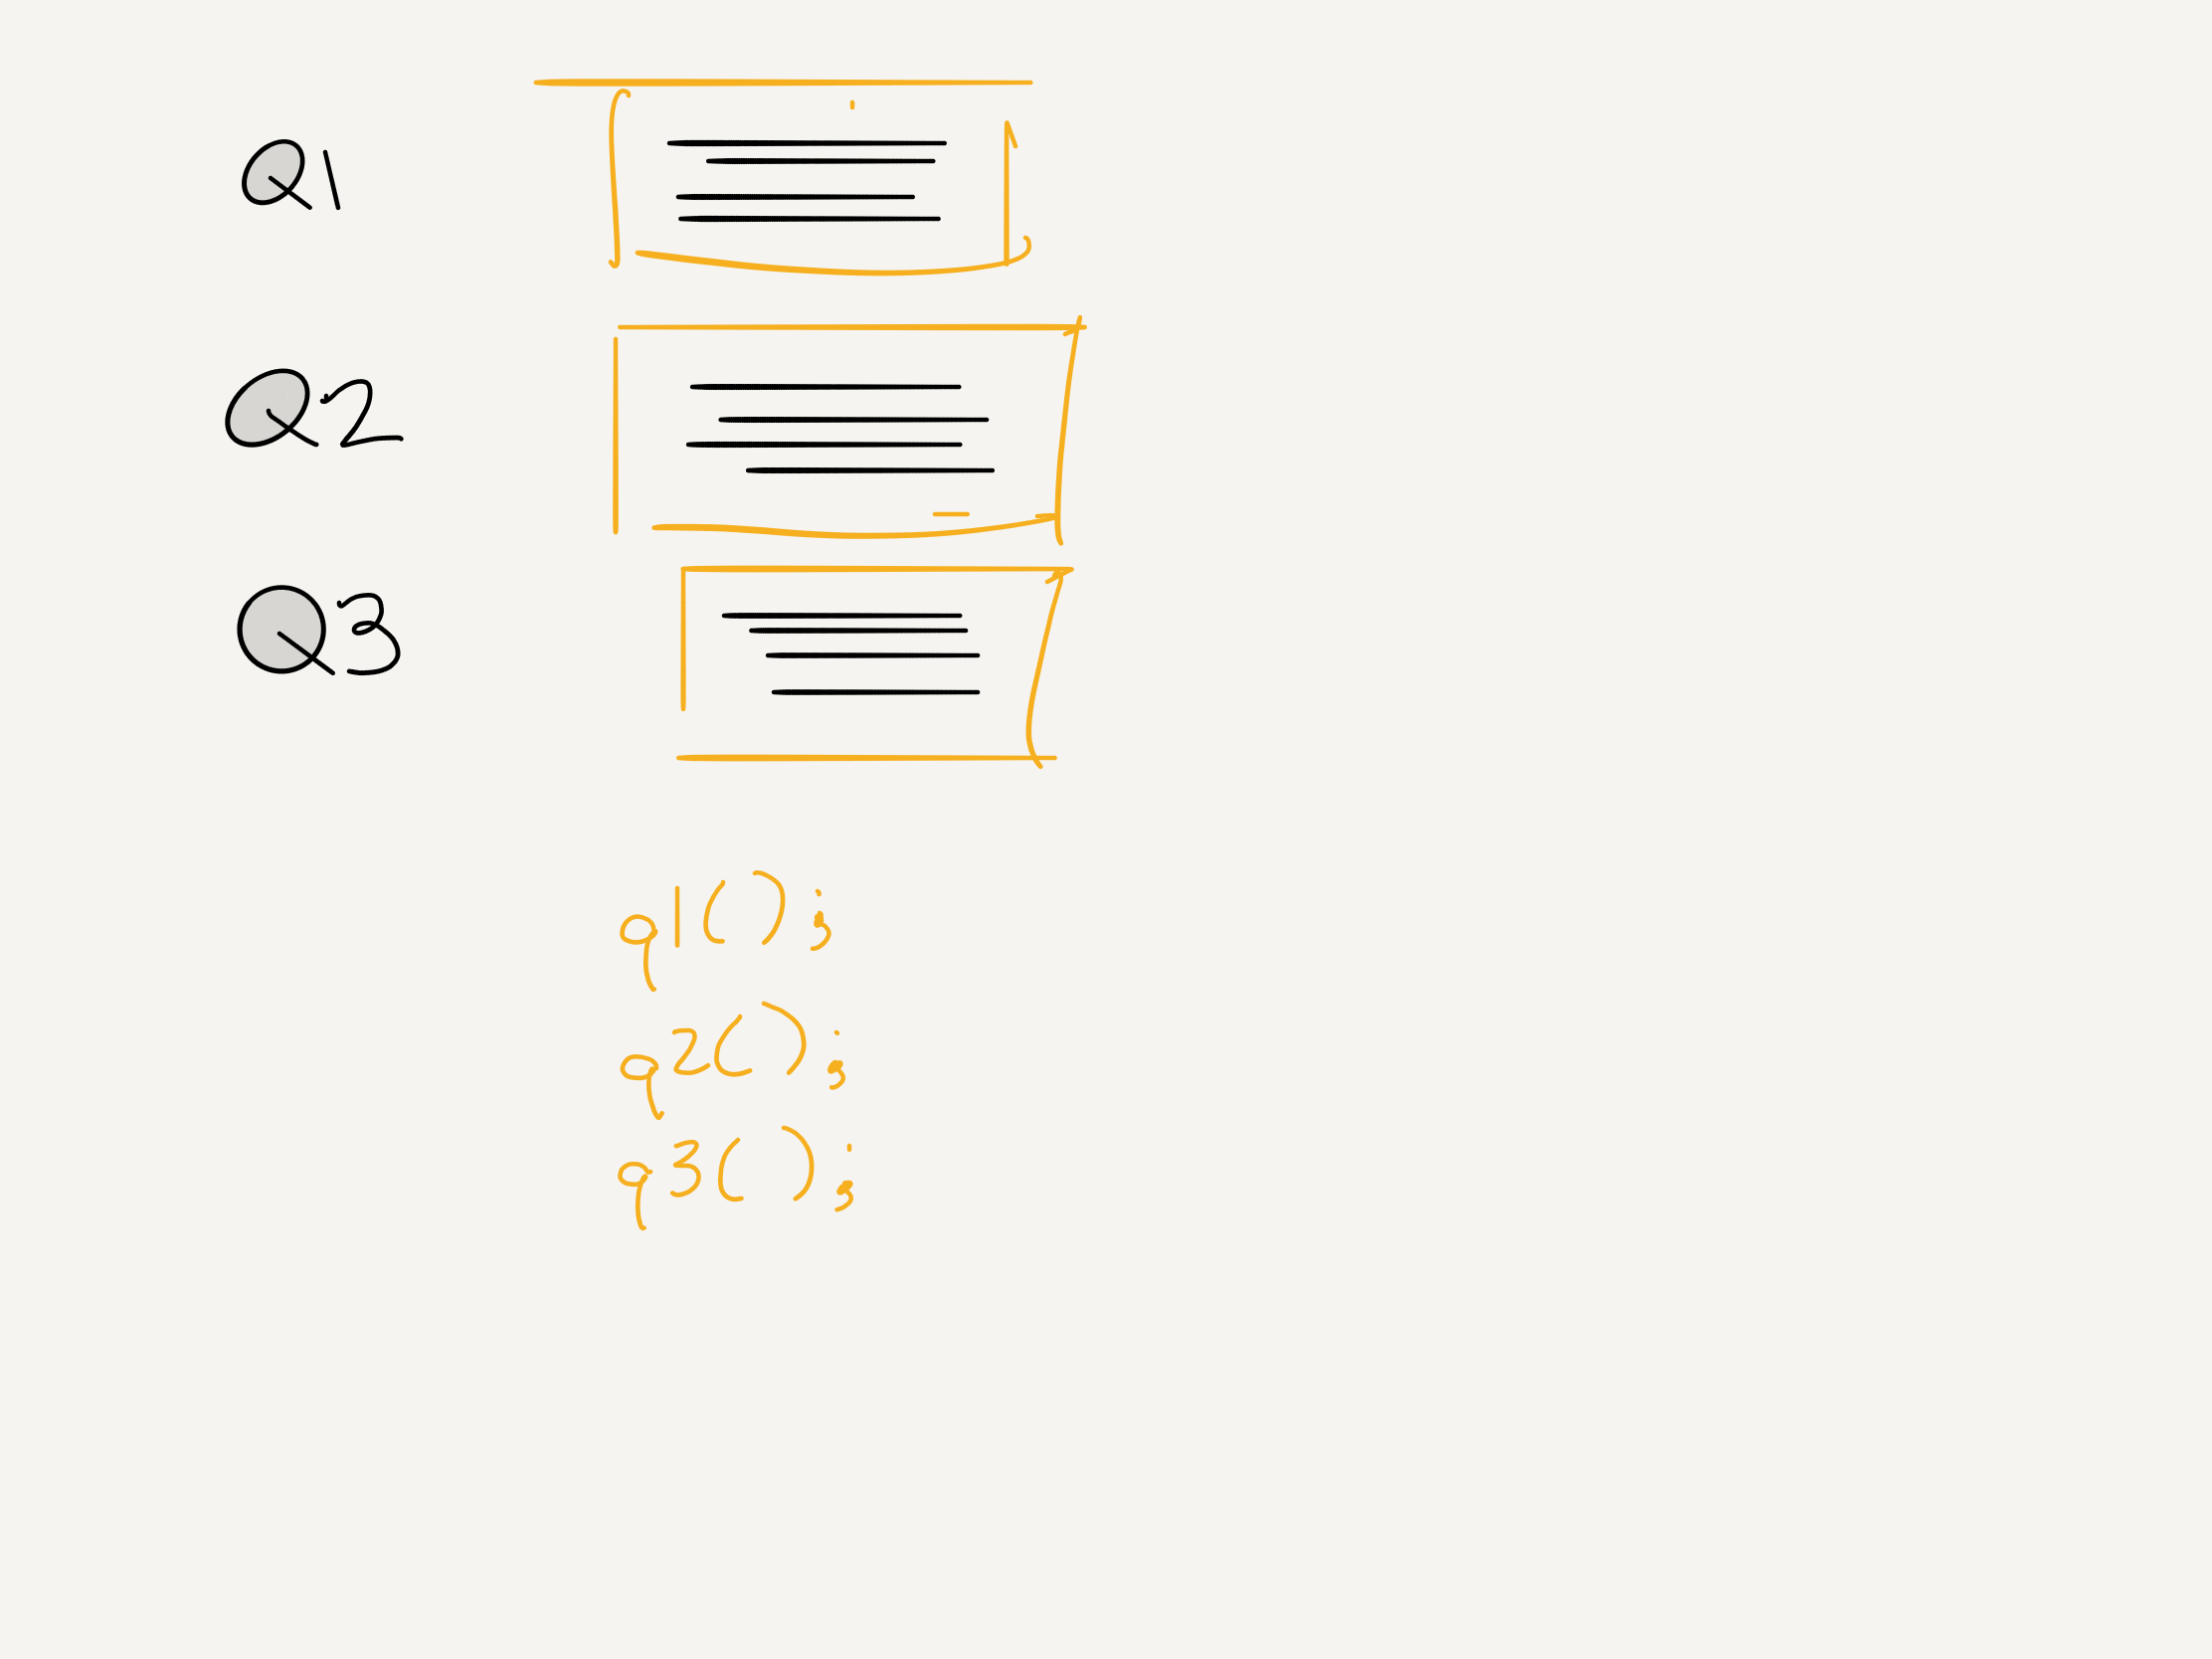 Q1
Q2
Q3
q1();
q2();
q3();